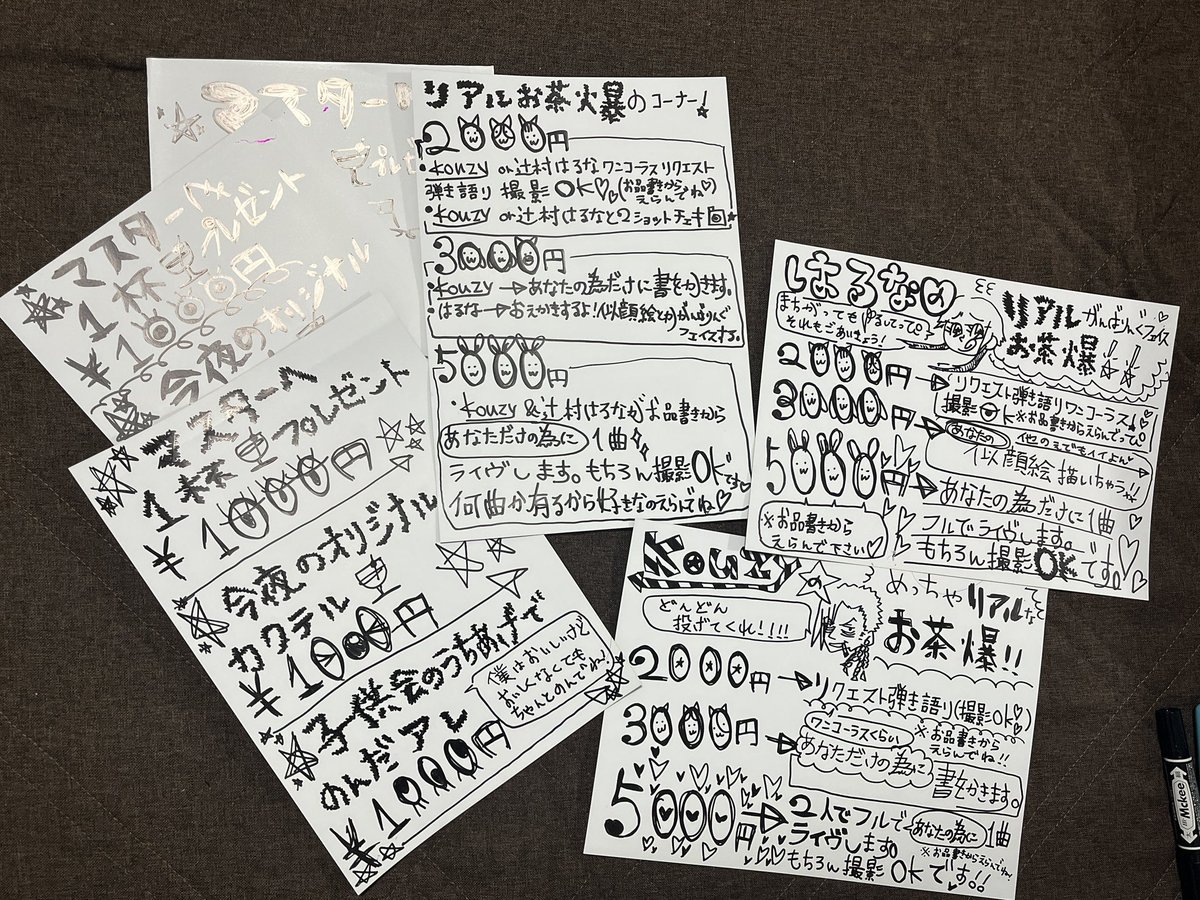 マスター
プレゼ
マスターへ
1杯 プレゼント
¥1000円
今夜のオリジナル
マスターへ
1杯 プレゼント
¥1000円
今夜のオリジナル
カクテル
¥1000円
子供会のうちあげで
のんだアレ
¥1000円
僕はおいしいけど
おいしくなくても
ちゃんとのんでね!
リアルお茶爆のコーナー!
2000円
・kouzy or 辻村はるな ワンコーラス リクエスト
弾き語り 撮影OK♡。(お品書きから えらんでね♡)
・kouzy or 辻村はるなと2ショットチェキ
3000円
・kouzy→あなたの為だけに書をかきます。
はるな→おえかきするよ!(似顔絵とか)がんばりんぐ
フェイスする。
5000円
・kouzy&辻村はるながお品書きから
あなただけの為に 1曲
ライヴします。もちろん撮影OKです♡
何曲か有るから好きなのえらんでね♡
はるなの
まちがっても ゆるしてってぴ。
それもごあいきょう!
リアル がんばりんぐフェイス
お茶爆!!
2000円→リクエスト弾き語りワンコーラス♪
撮影OK※お品書きからえらんでってぴ
3000円→あなたの 他のえでもイイよん♡
似顔絵描いちゃう!!
5000円→あなたの為だけに1曲
フルでライヴします。
もちろん撮影OKです。
※お品書きから
えらんで下さい♡
kouzy の
めっちゃリアル
お茶爆!!
どんどん
投げてくれ!!!!
2000円→リクエスト弾き語り(撮影OK!)
ワンコーラスくらい ※お品書きから
えらんでね!!
3000円→あなただけの為に 書をかきます。
5000円→2人でフルで あなたの為に 1曲
ライヴします。 ※お品書きからえらんでね!
もちろん撮影OKです!!
Mckee